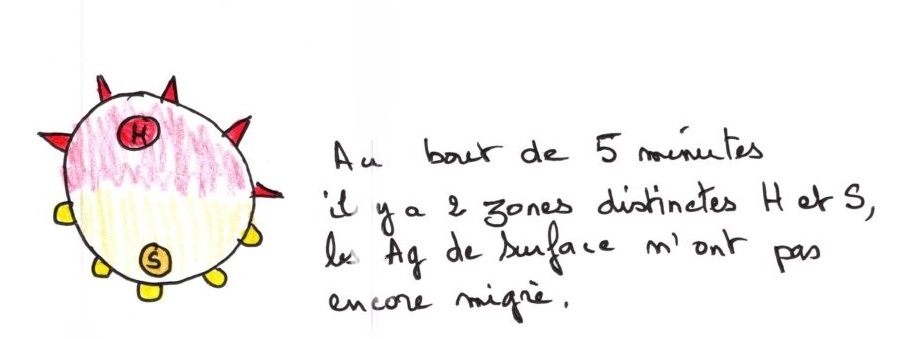 H
S
Au bout de 5 minutes
il y a 2 zones distinctes H et S,
les Ag de surface n'ont pas
encore migré.